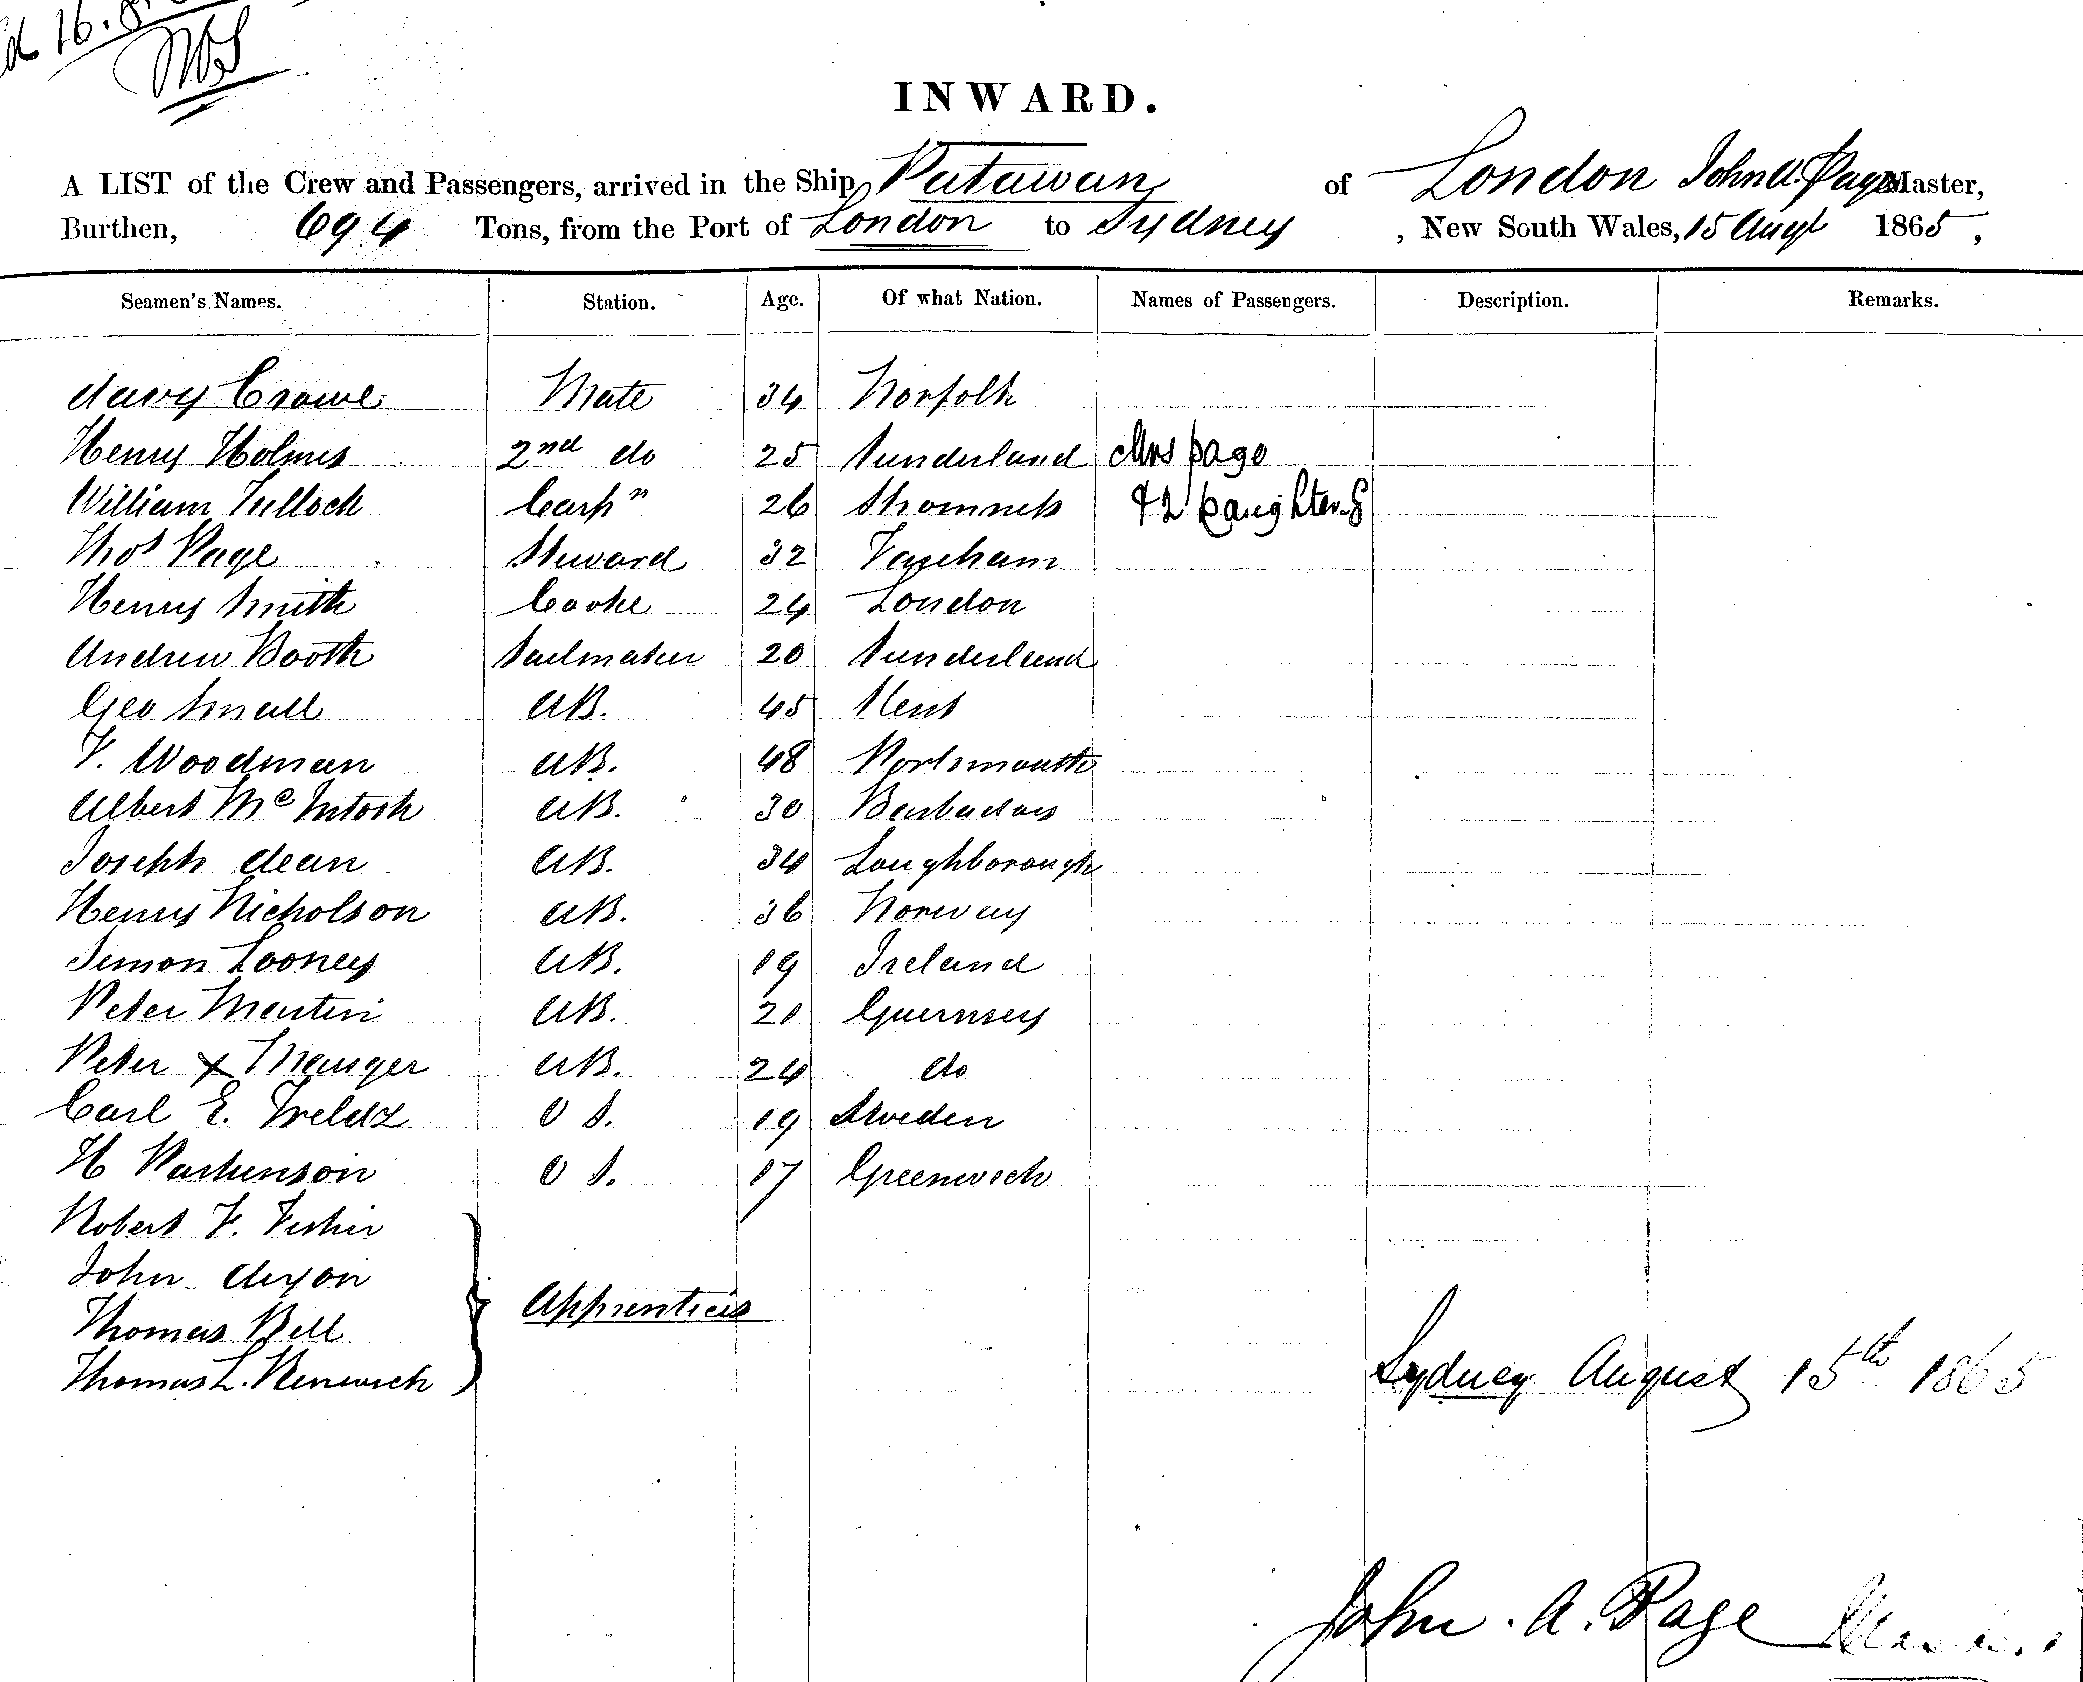 INWARD.
A LIST of the Crew and Passengers, arrived in the Ship Patawan of London John A. Page Master,
Burthen, 694 Tons, from the Port of London to Sydney, New South Wales, 15 Augt 1865,
Seamen's Names. Station. Age. Of what Nation. Names of Passengers. Description. Remarks.
Davy Crowe Mate 34 Norfolk
Henry Holmes 2nd do 25 Sunderland Mrs Page
William Tulloch Carpn 26 Stromness & 2 Daughters
Thos Page Steward 32 Fareham
Henry Smith Cooke 24 London
Andrew Booth Sailmaker 20 Sunderland
Geo Small AB. 45 Kent
F. Woodman AB. 48 Portsmouth
Albert McIntosh AB. 30 Barbadoes
Joseph Dean AB. 34 Loughborough
Henry Nicholson AB. 36 Norway
Simon Looney AB. 19 Ireland
Peter Martin AB. 21 Guernsey
Peter x Mauger AB. 24 do
Carl E. 19 Sweden
H Parkenson O S. 17 Greenwich
Robert F. Fisher
John Dixon
Apprentices
Thomas Bell
Thomas L. Renwick
Sydney August 15th 1865
John. A. Page